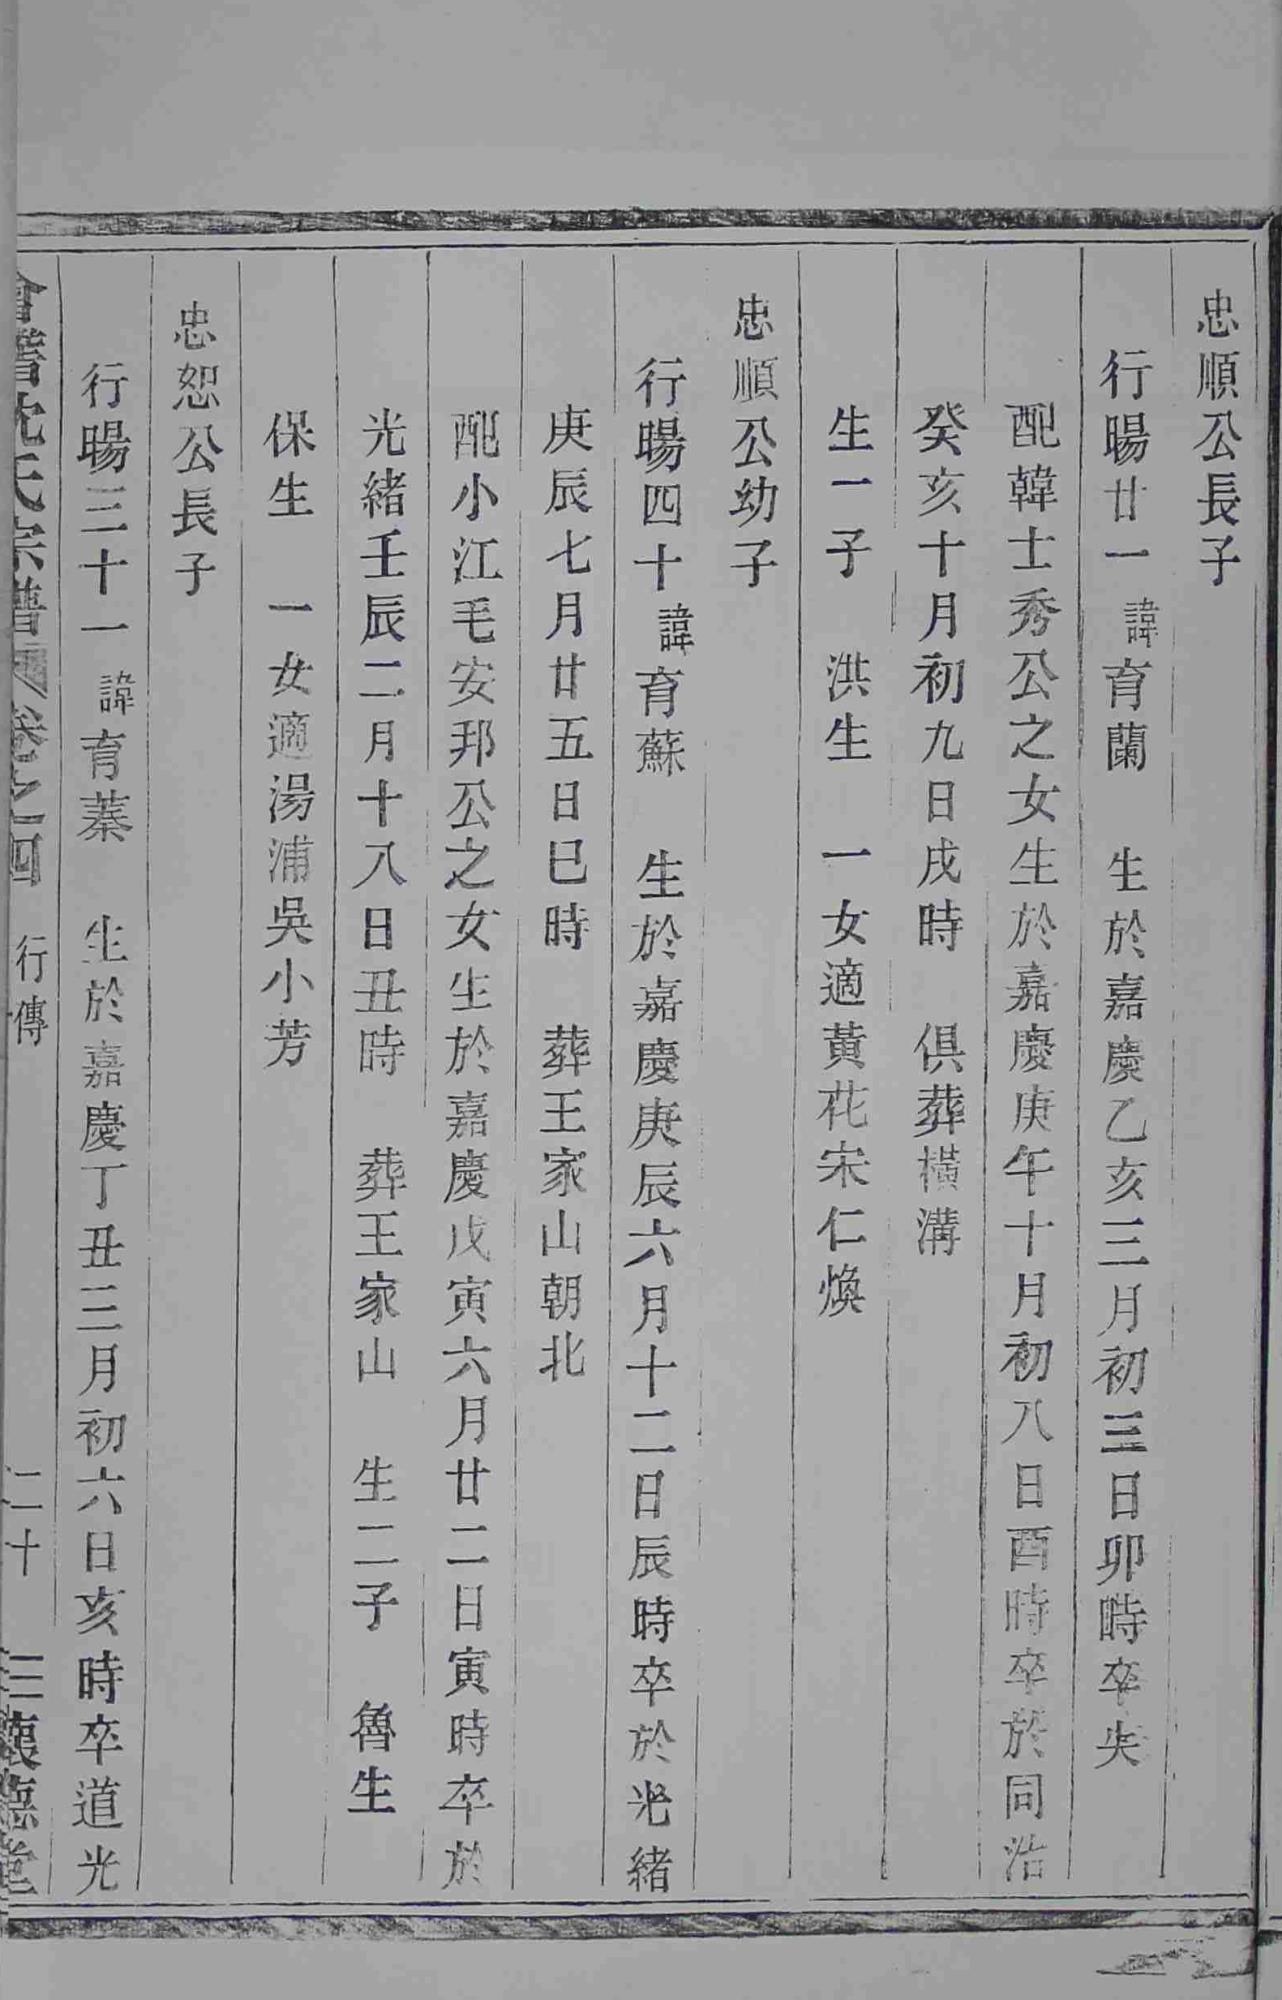 忠順公長子
行暘廿一諱育蘭 生於嘉慶乙亥三月初三日卯時卒失
配韓士秀公之女生於嘉慶庚午十月初八日酉時卒於同治
癸亥十月初九日戌時 俱葬橫溝
生一子 洪生 一女適黃花宋仁煥
忠順公幼子
行暘四十諱育蘇 生於嘉慶庚辰六月十二日辰時卒於光緒
庚辰七月廿五日巳時 葬王家山朝北
配小江毛安邦公之女生於嘉慶戊寅六月廿二日寅時卒於
光緒壬辰二月十八日丑時 葬王家山 生二子 魯生
保生 一女適湯浦吳小芳
忠恕公長子
行暘三十一諱育蓁 生於嘉慶丁丑三月初六日亥時卒道光
會稽沈氏宗譜 卷之四 行傳 二十 三懷德堂